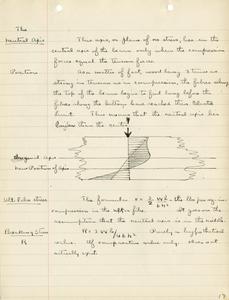 The
Neutral Axis This axis, or plane of no stress, lies in the
central axis of the beam only where the compression
forces equal the tension forces.
Position As a matter of fact, wood being 3 times as
strong in tension as in compression, the fibres along
the top of the beam begin to fail long before the
fibres along the bottom have reached their elastic
limit. This means that the neutral axis lies
below the center.
Original Axis
New Position of Axis
Ult. Fibre Stress The formula r = 3/2 Wl/bh², the lbs per sq in
compression in the ult. fibre. It goes on the
assumption that the neutral axis is in the middle.
Breaking Stress R = 3Wl/2bh² Purely a hypothetical
R value. Of comparative value only. Does not
actually exist.
17